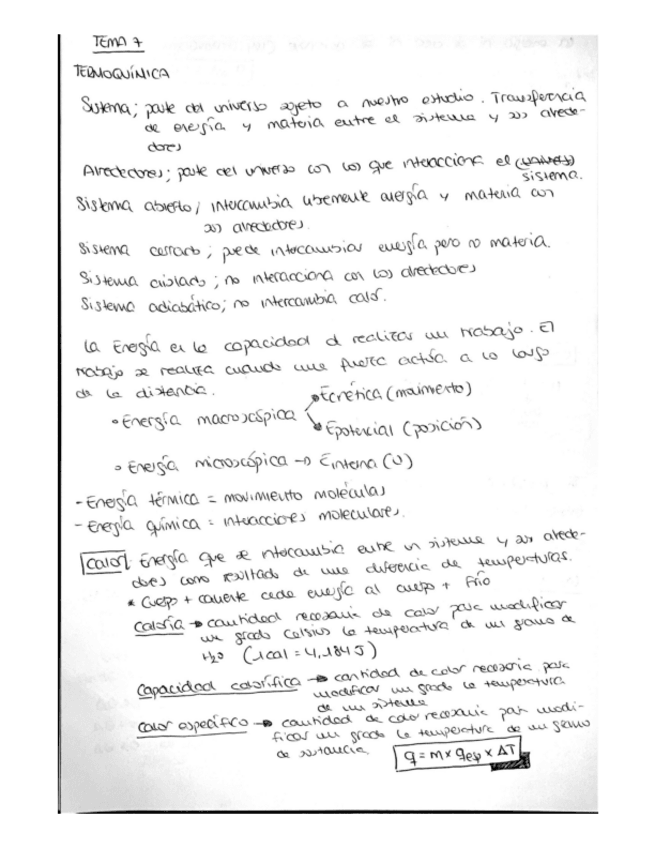 TEMA 7
TERMOQUÍMICA
Sistema; parte del universo sujeto a nuestro estudio. Transferencia
de energía y materia entre el sistema y sus alrede-
dores
Alrededores; parte del universo con los que interacciona el (universo)
sistema.
Sistema abierto; intercambia libremente energía y materia con
sus alrededores.
Sistema cerrado; puede intercambiar energía pero no materia.
Sistema aislado; no interacciona con los alrededores
Sistema adiabático; no intercambia calor.
La Energía es la capacidad d realizar un trabajo. El
trabajo se realiza cuando una fuerza actúa a lo largo
de la distancia.
• Energía macroscópica
Ecinética (movimiento)
Epotencial (posición)
• Energía microscópica → Einterna (U)
- Energía térmica = movimiento moléculas
- Energía química = interacciones moleculares.
Calor Energía que se intercambia entre un sistema y sus alrede-
dores como resultado de una diferencia de temperaturas.
* Cuerpo + caliente cede energía al cuerpo + frío
caloría → cantidad necesaria de calor para modificar
un grado Celsius la temperatura de un gramo de
H₂O (1 cal = 4,184 J)
Capacidad calorífica → cantidad de calor necesaria para
modificar un grado la temperatura
de un sistema
Calor específico → cantidad de calor necesaria para modi-
ficar un grado la temperatura de un gramo
de sustancia.
q = m x qesp x ΔT